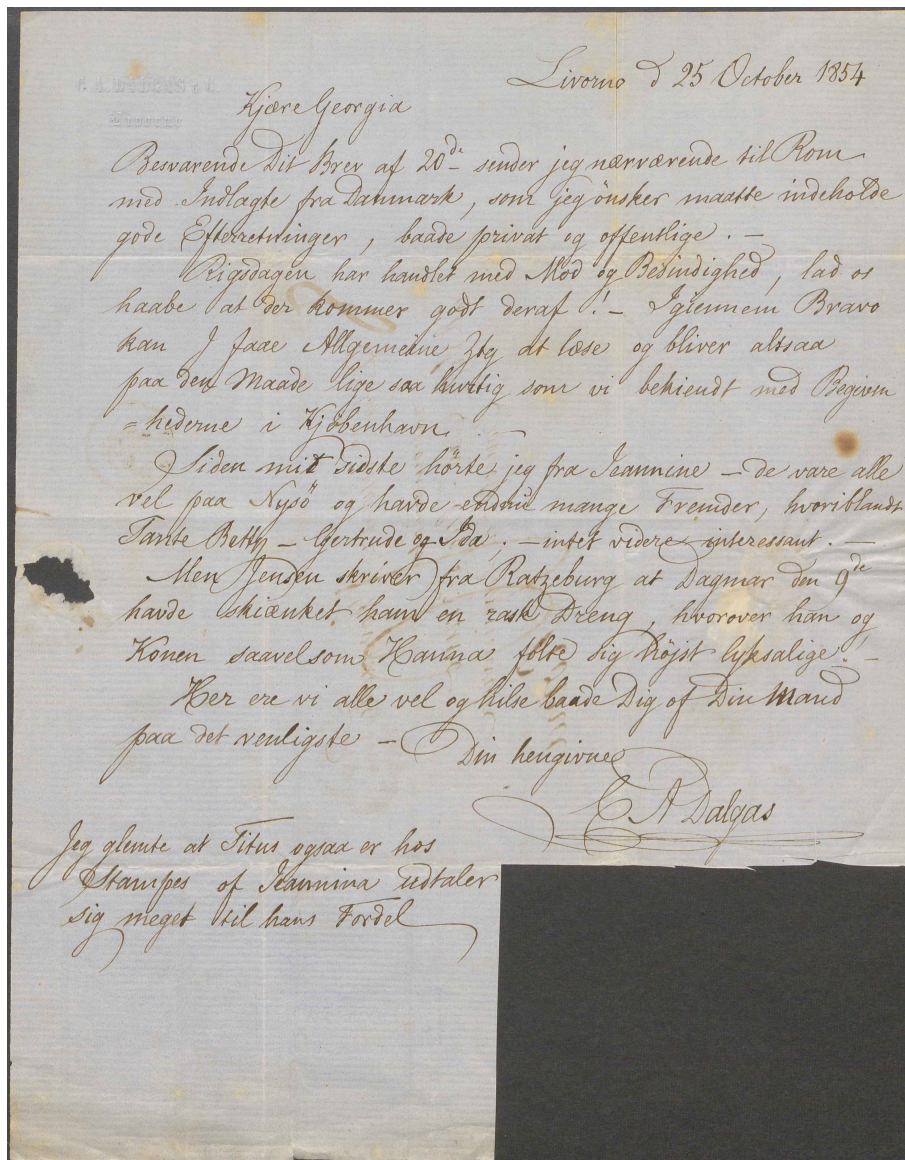 Livorno d 25 October 1854
Kjære Georgia
Besvarende Dit Brev af 20de sender jeg nærværende til Rom
med Indlagte fra Danmark, som jeg ønsker maatte indeholde
gode Efterretninger, baade privat og offentlige. —
Rigsdagen har handlet med Mod og Besindighed, lad os
haabe at der kommer godt deraf! — Igiennem Bravo
kan J faae Allgemeine Ztg at læse og bliver altsaa
paa den Maade lige saa hurtig som vi bekiendt med Begiven
=hederne i Kjøbenhavn.
Siden mit sidste hörte jeg fra Jeannine — de vare alle
vel paa Nysö og havde endnu mange Fremder, hvoriblandt
Tante Betty — Gertrude og Ida; — intet videre interessant. —
Men Jensen skriver fra Ratzeburg at Dagmar den 9de
havde skiænket ham en rask Dreng, hvorover han og
Konen saavelsom Hanna fölte sig höjst lyksalige! —
Her ere vi alle vel og hilse baade Dig of Din Mand
paa det venligste — Din hengivne
C A Dalgas
Jeg glemte at Titus ogsaa er hos
Stampes of Jeannina udtaler
sig meget til hans Fordel